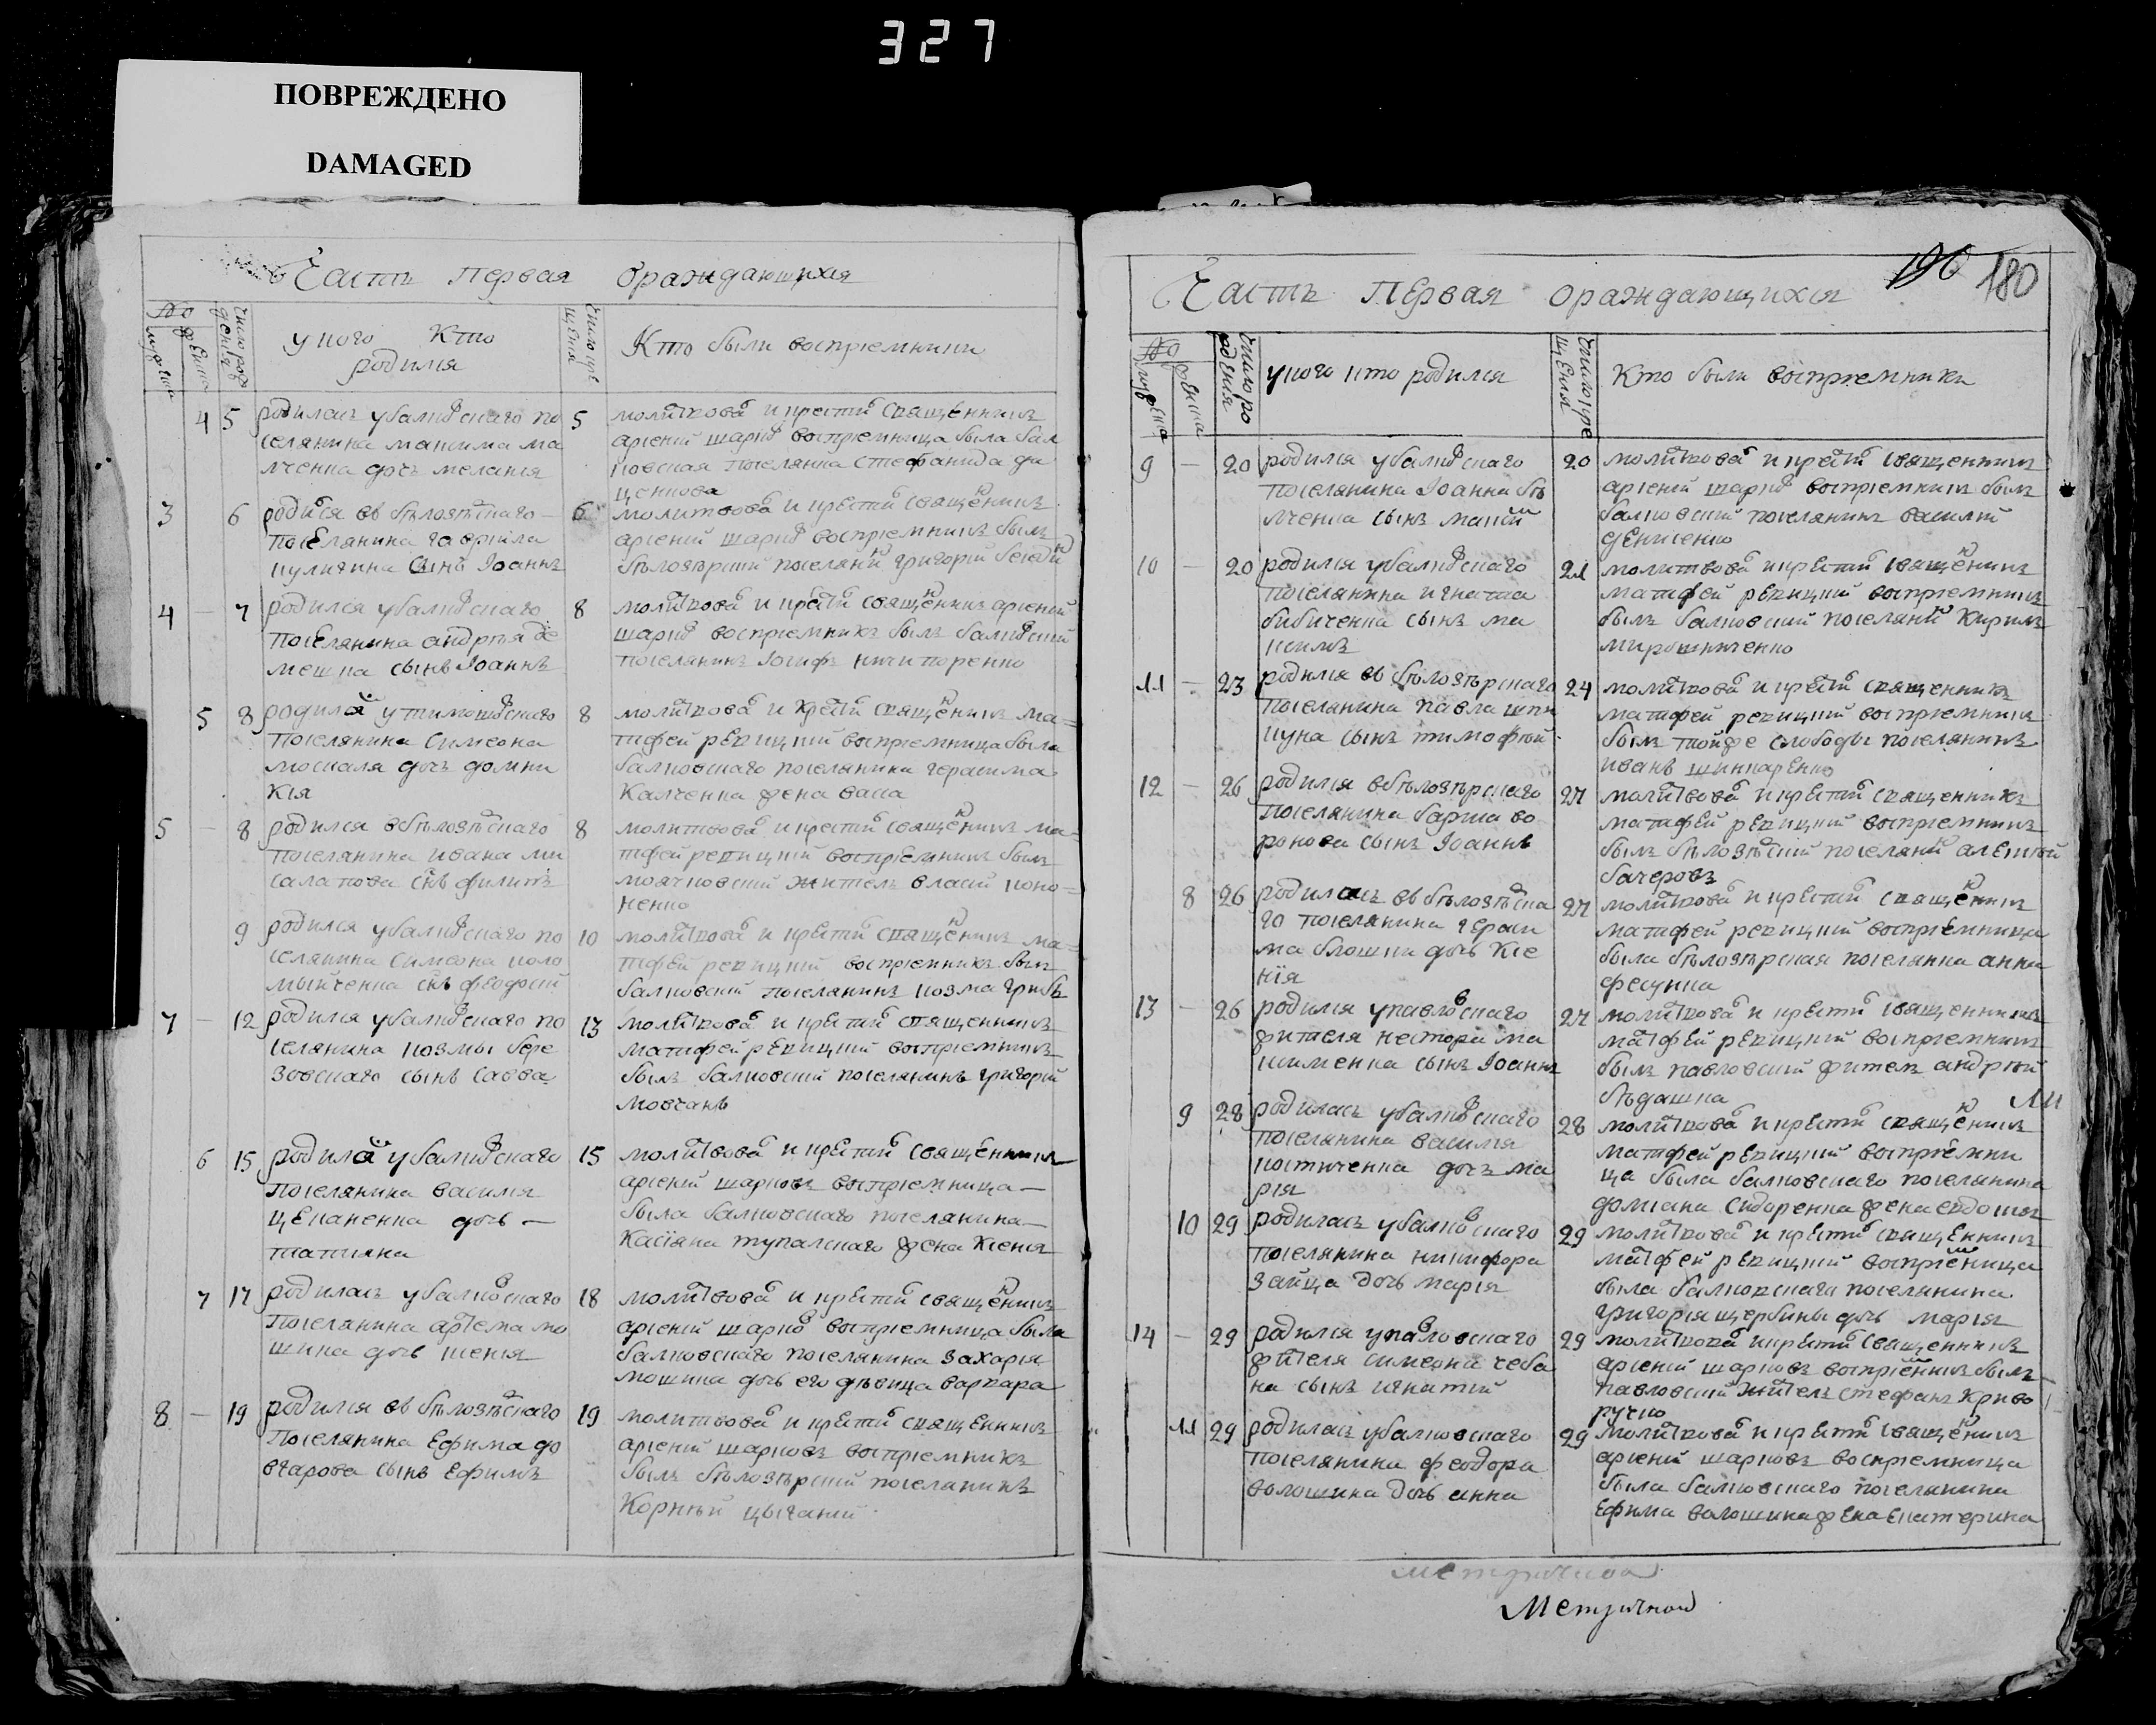 327
ПОВРЕЖДЕНО
DAMAGED
Часть первая ораждающихся
у кого Кто
родился
Кто были восприемники
4 5 родилась у балковскаго по
селянина максима ма
лченка дочь мелания
5 молитвова и крести священникъ
арсений шарков восприемница была бал
ковская поселянка Стефанида
3 6
поселянина гавриила
куличина сынъ Iоаннъ
6 молитвова и крести священикъ
арсений шарков восприемникъ былъ
бѣлозѣрский поселянин григорий
4 – 7 родился у балковскаго
поселянина андрѣя де
мешка сынъ Iоаннъ
8 молитвова и крести священикъ арсений
шарков восприемникъ былъ балковский
поселянинъ Iосифъ ничипоренко
5 8 родилась у тимошовскаго
поселянина Симеона
москаля дочь домни
кия
8 молитвова и крести священикъ ма=
тфей рекицкий восприемница была
балковскаго поселянина герасима
Калченка жена васса
5 – 8 родился
поселянина ивана ми
салапова снъ филипъ
8 молитвова и крести священикъ ма=
тфей рекицкий восприемникъ былъ
моячковский житель власий коно=
ненко
9 родился у балковскаго по
селянина Симеона коло
мыйченка снъ феодосий
10 молитвова и крести священикъ ма=
тфей рекицкий восприемникъ былъ
балковский поселянинъ козма грибъ
7 – 12 родился у балковскаго по
селянина козмы бере
зовскаго сынъ савва
13 молитвова и крести священникъ
матфей рекицкий восприемникъ
былъ балковский поселянинъ григорий
мовчанъ
6 15 родилась у балковскаго
поселянина василия
цепаненка дочь –
татияна
15 молитвова и крести священникъ
арсений шарковъ восприемница –
была балковскаго поселянина –
Касияна тупалскаго жена Ксения
7 17 родилась у балковскаго
поселянина артема мо
шина дочь ксения
18 молитвова и крести священикъ
арсений шарков восприемница была
балковскаго поселянина захария
мошина дочь его дѣвица варвара
8 – 19
поселянина Ефима до
вгарова сынъ Ефимъ
19 молитвова и крести священникъ
арсений шарковъ восприемникъ
былъ бѣлозѣрский поселянинъ
Корнѣй цыганий
190 180
Часть Первая ораждающихся
у кого кто родился
Кто были восприемники
9 – 20 родился у балковскаго
поселянина Iоанна бѣ
лченка сынъ
20 молитвова и крести священникъ
арсений шарков восприемникъ былъ
балковский поселянинъ василий
денисенко
10 – 20 родился у балковскаго
поселянина игната
бибиченка сынъ ма
ксимъ
21 молитвова и крести священикъ
матфей рекицкий восприемникъ
былъ балковский поселянин Кирилъ
мирошниченко
11 – 23 родился въ бѣлозѣрскаго
поселянина павла шпи
куна сынъ тимофѣй
24 молитвова и крести священникъ
матфей рекицкий восприемникъ
былъ тойже слободы поселянинъ
иванъ шинкаренко
12 – 26 родился в бѣлозѣрскаго
поселянина
ронова сынъ Iоаннъ
27 молитвова и крести священникъ
матфей рекицкий восприемникъ
былъ бѣлозѣрский поселянин алексѣй
бочеровъ
8 26
го поселянина гераси
ма блошки дочь Ксе
ния
27 молитвова и крести священикъ
матфей рекицкий восприемница
была бѣлозѣрская поселянка анна
фесунка
13 – 26 родился у павловскаго
жителя нестора ма
ксименка сынъ Iоаннъ
27 молитвова и крести священникъ
матфей рекицкий восприемникъ
былъ павловский житель андрѣй
бѣдашка
9 28 родилась у балковскаго
поселянина василия
костюченка дочь ма
рия
28 молитвова и крести священикъ
матфей рекицкий восприемни
ца была балковскаго поселянина
домиана Сидоренка жена евдокия
10 29 родилась у балковскаго
поселянина никифора
зайца дочь мария
29 молитвова и крести священникъ
матфей рекицкий восприемница
была балковскаго поселянина
григория щербины дочь мария
14 – 29 родился у павловскаго
жителя симеона чеба
на сынъ игнатий
29 молитвова и крести священникъ
арсений шарковъ восприемникъ былъ
павловский житель стефанъ Криво
ручко
11 29 родилась у балковскаго
поселянина феодора
волошина дочь анна
29 молитвова и крести священикъ
арсений шарковъ восприемница
была балковскаго поселянина
Ефима волошина жена Екатерина
Метричной